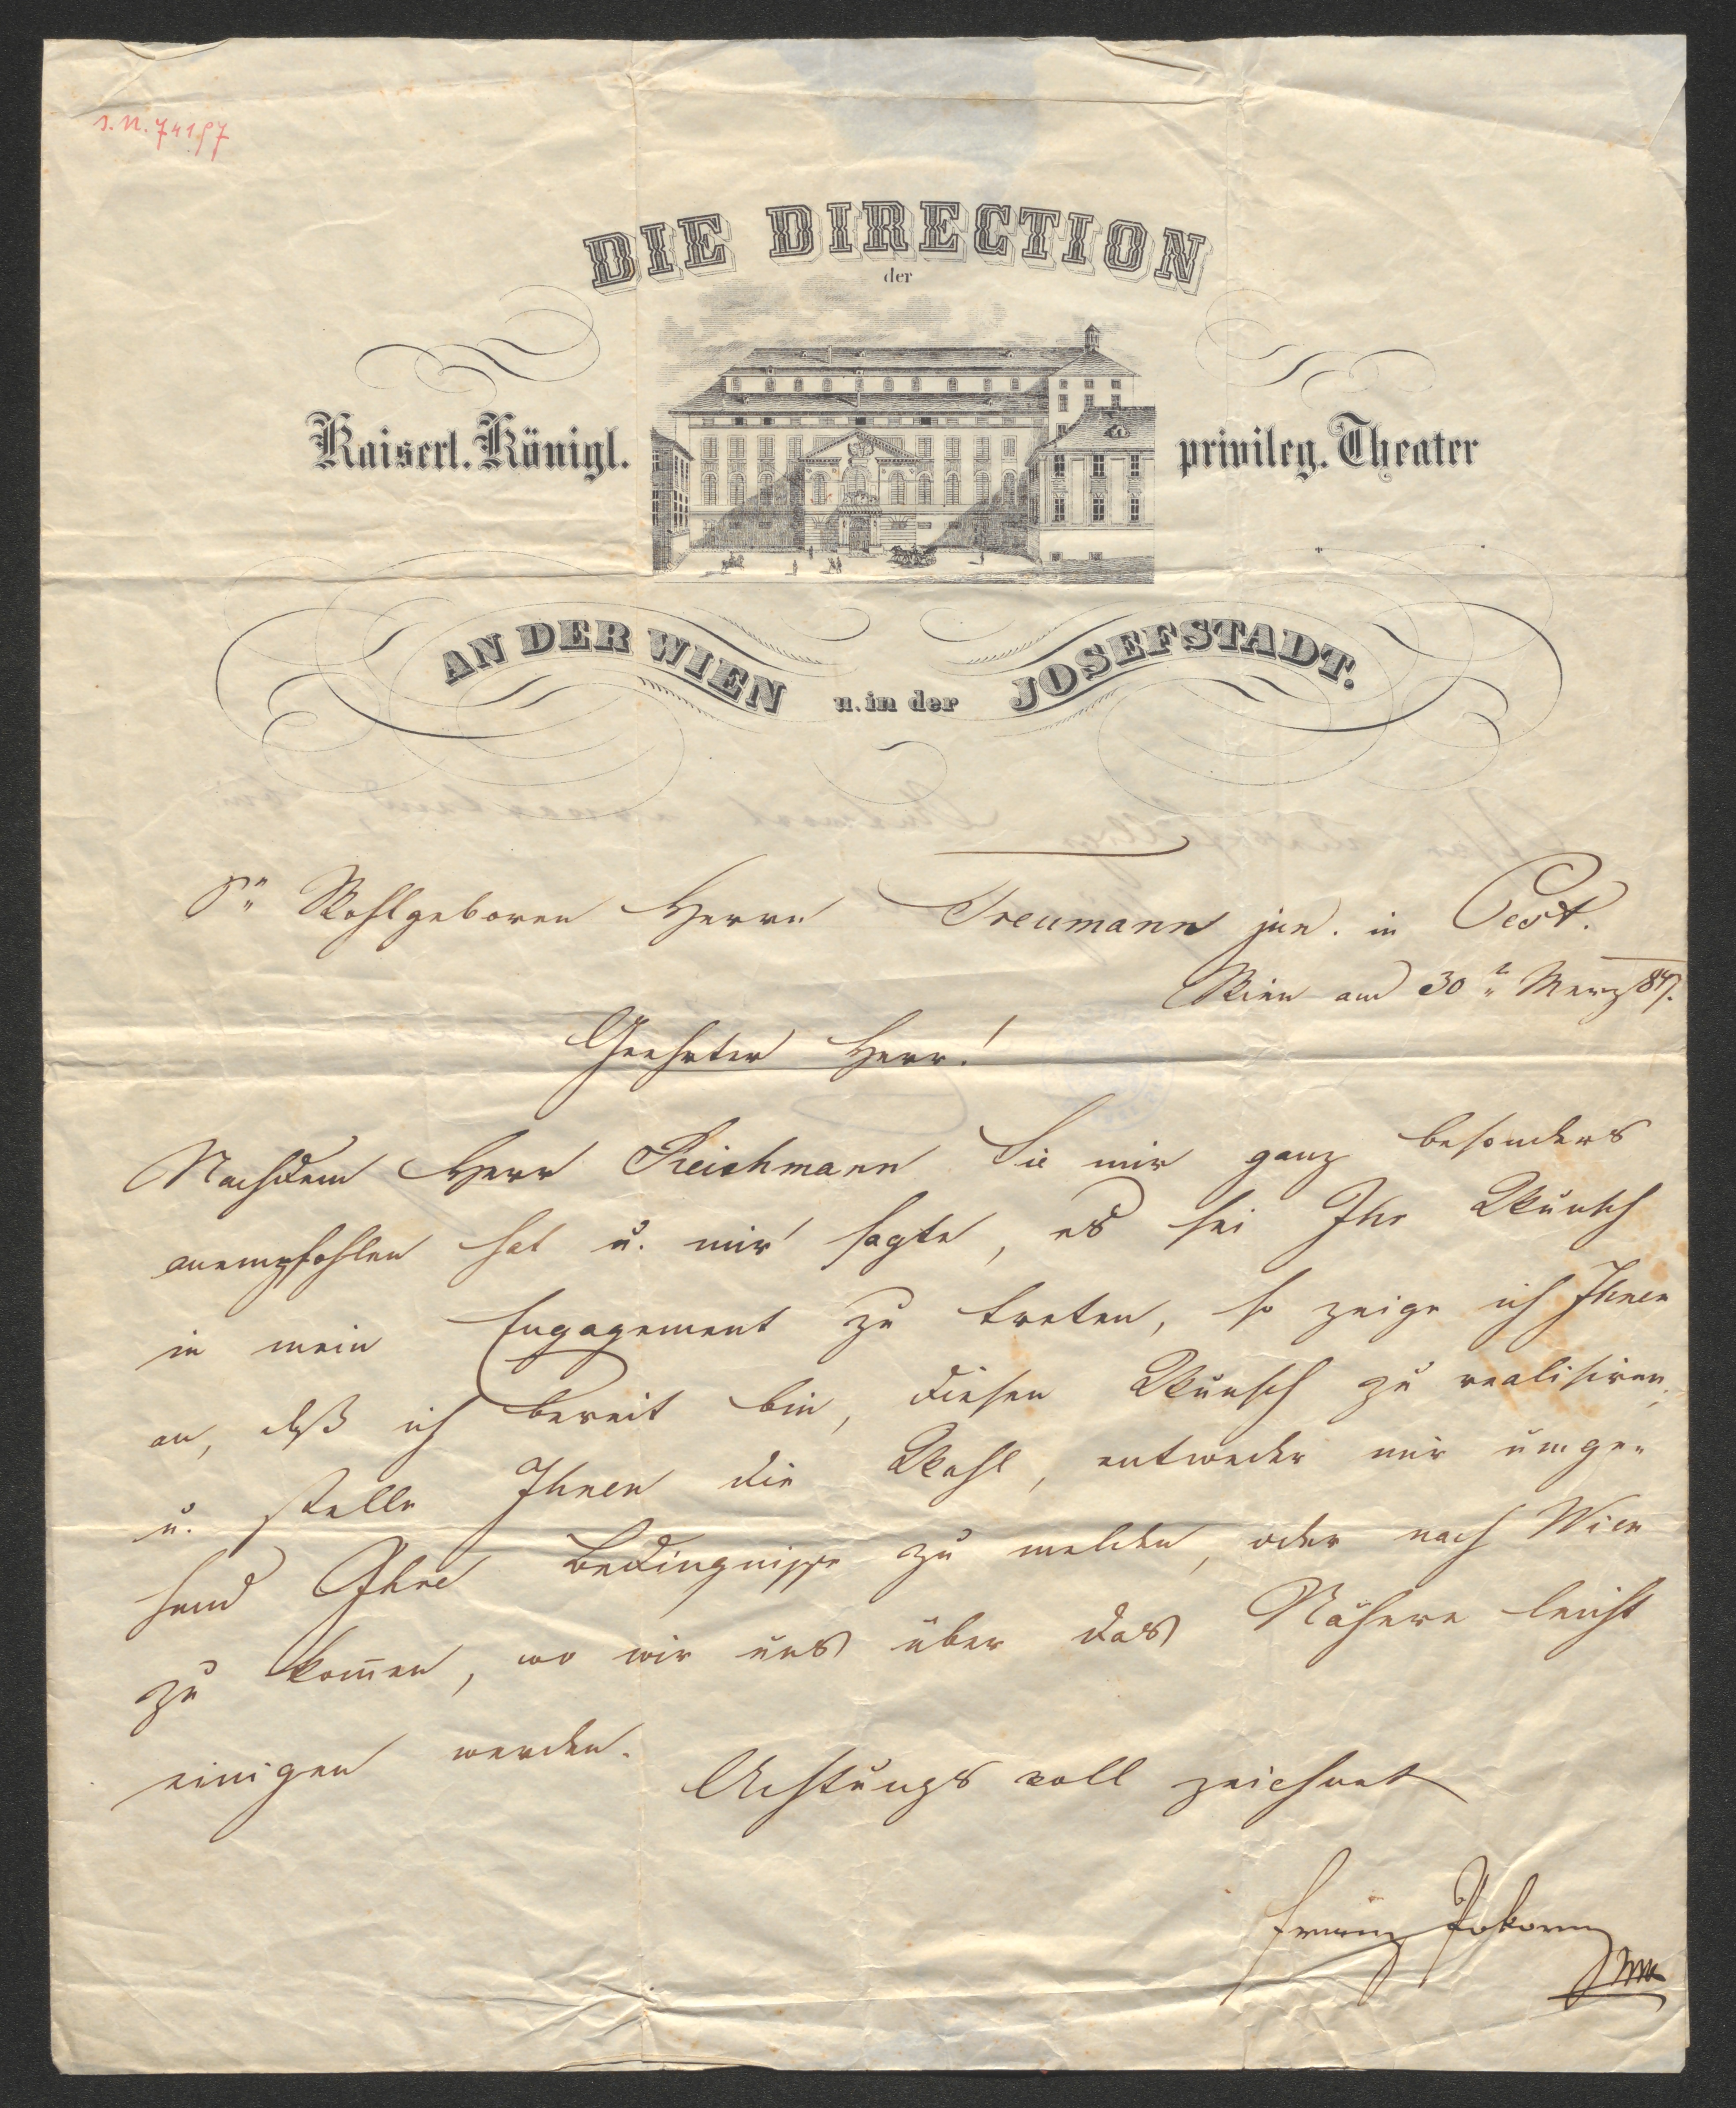 I. N. 74197
DIE DIRECTION
der
Kaiserl. Königl. privileg. Theater
AN DER WIEN u. in der JOSEFSTADT.
Sr Wohlgeboren Herrn Treumann jun. in Pest.
Wien am 30t Merz 847.
Geehrter Herr!
Nachdem Herr Reichmann Sie mir ganz besonders
anempfohlen hat u. mir sagte, es sei Ihr Wunsch
in mein Engagement zu treten, so zeige ich Ihnen
an, daß ich bereit bin, diesen Wunsch zu realisiren,
u. stelle Ihnen die Wahl, entweder mir umge-
hend Ihre Bedingnisse zu melden, oder nach Wien
zu kom̄en, wo wir uns über das Nähere leicht
einigen werden.
Achtungsvoll zeichnet
Franz Pokorny